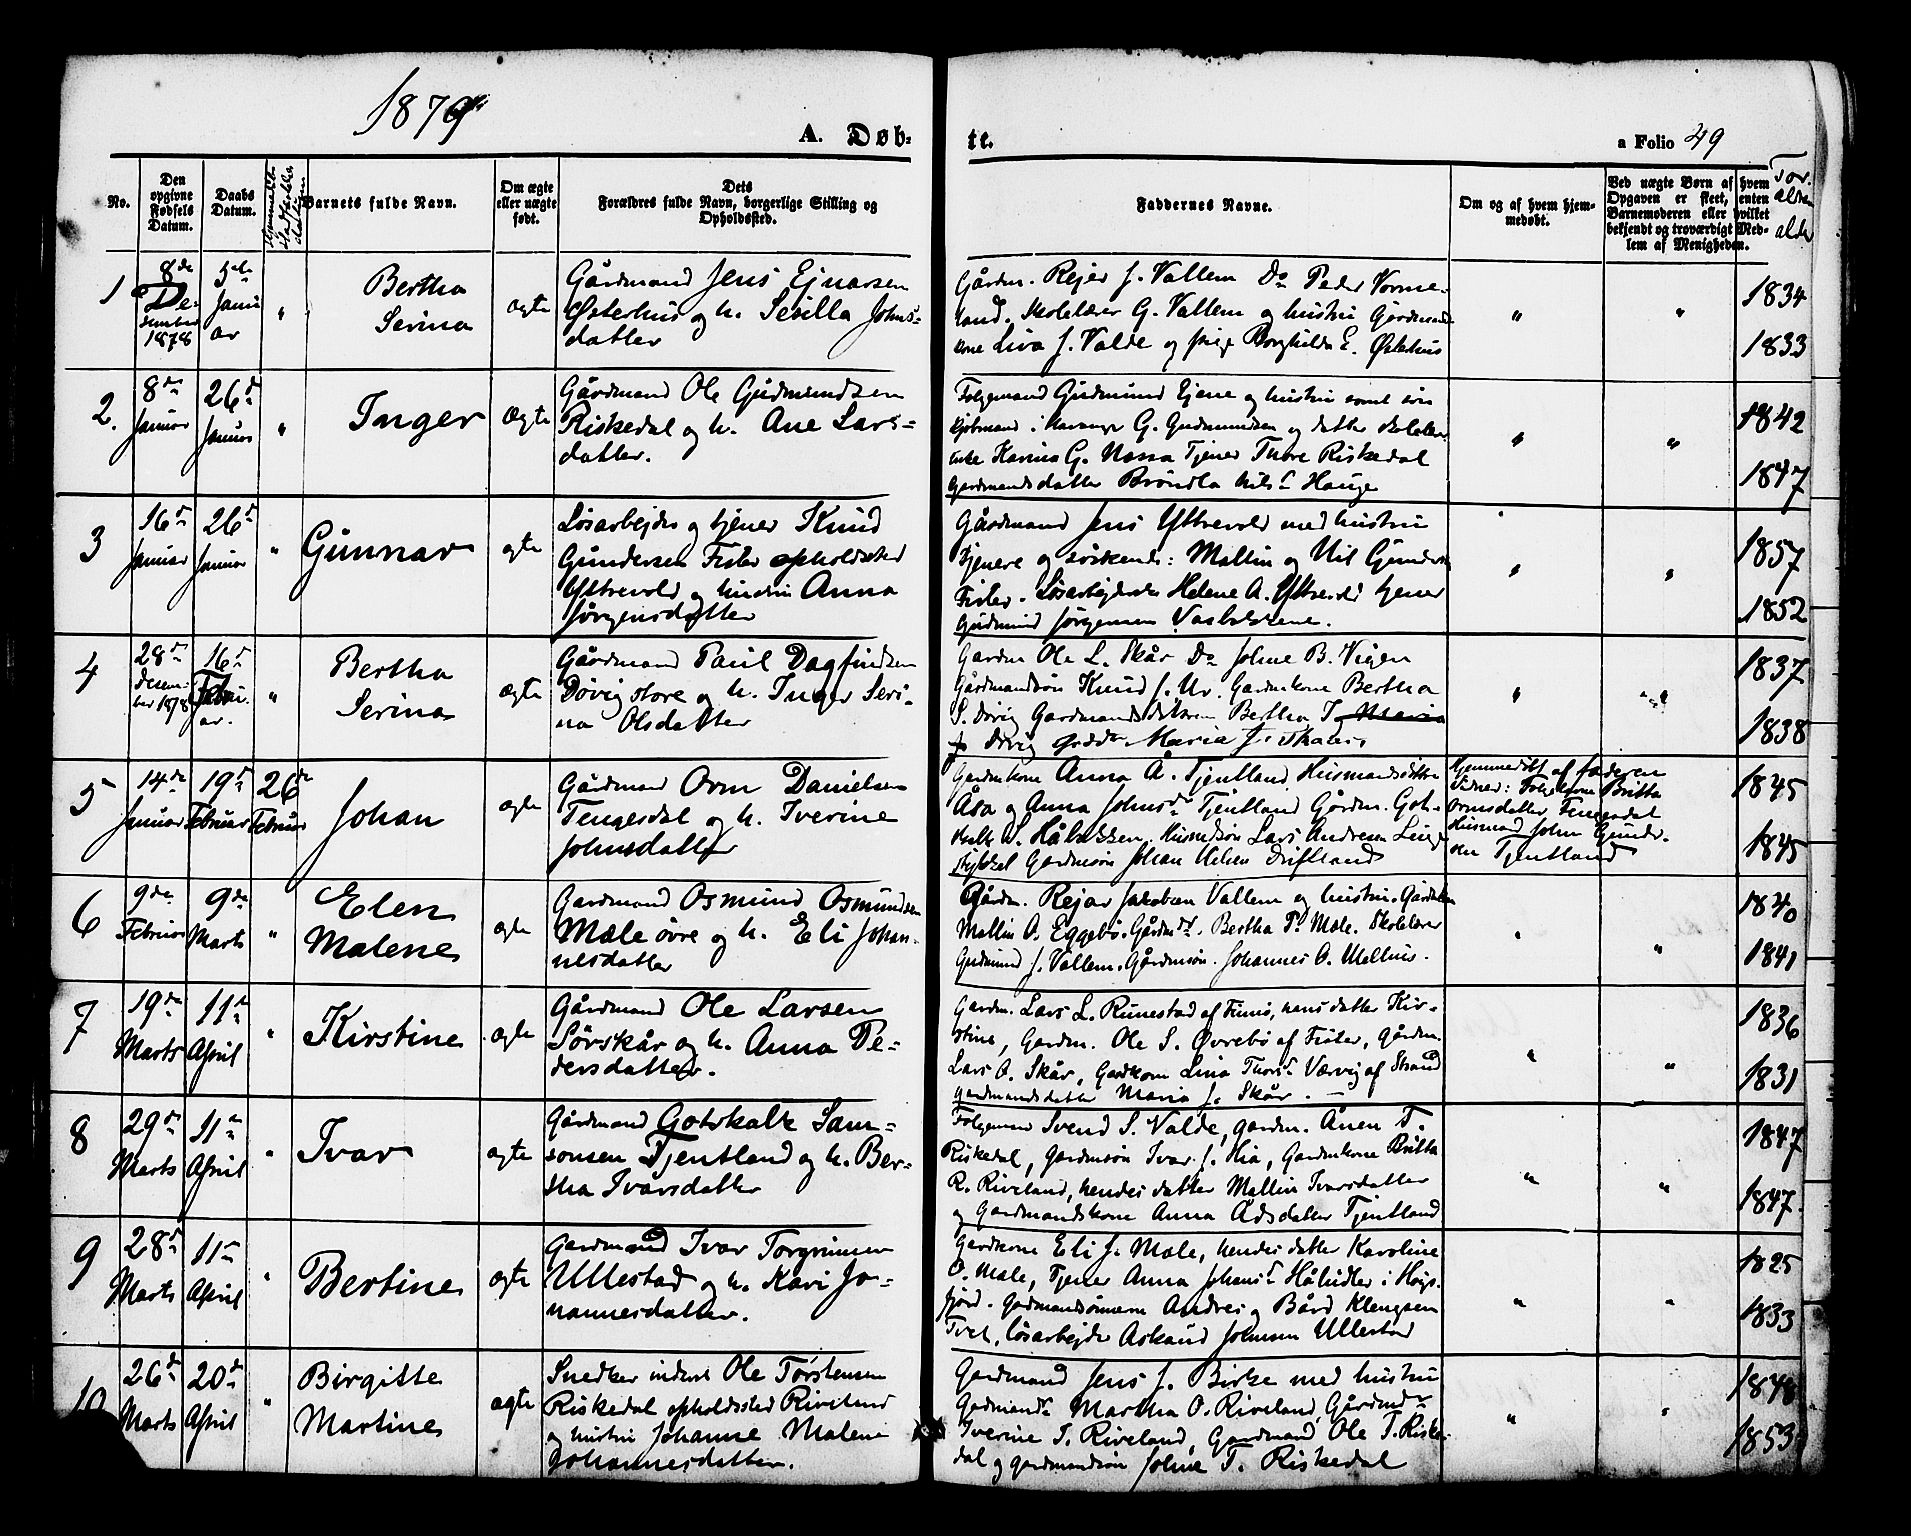 1879
A. Døb-
te.
a Folio 49
No.
Den opgivne Fødsels Datum.
Daabs Datum.
Barnets fulde Navn.
Om ægte eller uægte født.
Dets Forældres fulde Navn, borgerlige Stilling og Opholdssted.
Faddernes Navne.
Om og af hvem hjemmedøbt.
Ved uægte Børn af hvem Opgaven er skeet, enten Barnemoderen eller hvilket bekjendt og troværdigt Medlem af Menigheden.
Foræld​res alder
1
8de Desember 1878
5te Januar
"
Bertha Serina
ægte
Gårdmand Jens Ejnarsen
Østerhus og h. Sevilla Johns-
datter
Gårdm. Rejer J. Vallem Do Peder Vorme-
land. Skolelærer G. Vallem og hustru Gårdmands
kone Liva J. Valde og pige Borghilda E. Østehus
"
"
1834
1833
2.
8de Januar
26d Januar
"
Inger
Ægte
Gårdmand Ole Gudmundsen
Riskedal og h. Ane Lars-
datter.
Folgemand Gudmund Ejene og hustru samt søn
kjøbmand i Stavanger G. Gudmundsen og datter skolelærer
enke Karina G. Nessa Tjener Thore Riskedal
Gardmandsdatter Brøndla Nilsd Hauge
"
"
1842
1847
3
16d Januar
26d Januar
"
Gunnar
ægte
Løsarbejder og tjener Knud
Gundersen Fister opholdssted
Yttrevold og hustru Anna
Jørgensdatter
Gårdmand Jens Yttrevold med hustru
tjenere og søskende: Mallin og Nil Gunders
Fister. Løsarbejderske Helene A. Yttrevold tjener
Gudmund Jørgensen Vasbakkene.
"
"
1857
1852
4
28d desember 1878
16d Februar.
"
Bertha Serina
ægte
Gårdmand Paul Dagfindsen
Døvig store og h. Inger Seri-
na Olsdatter
Gardm Ole L. Skår Do Johne B. Vigen
Gårdmandsøn Knud J. Ur. Gardmkone Bertha
S. Døvig Gardmandsdøttrene Bertha T. Maria
J. Døvig Maria J. Skaar.
"
"
1837
1838
5
14de Januar
19d Februar
26de Februar
Johan
ægte
Gårdmand Orm Danielsen
Tengesdal og h. Iverine
Johnsdatter
Gardmkone Anna Å. Tjentland Husmandsdøttre
Åsa og Anna Johnsdr Tjentland Gårdm. Got-
skalk S. Husmdsøn Lars Andreas
Gardmsøn Johan Nilsen
Hjemmedøbt af faderen
Vidner: Folgekone Britha
Ormsdatter Tengesdal
Husmand John Gunder-
sen Tjentland
1845
1845
6
9de Februar
9de Marts
"
Elen Malene
ægte
Gardmand Osmund Osmundsen
Mæle øvre og h. Eli Johan-
nesdatter
Gårdm. Rejar Jakobsen Vallem og hustru. Gårdskone
Mallin O. Eggebø. Gårdmdr. Bertha P. Mæle. Skolelærer
Gudmund J. Vallem. Gårdmsøn. Johannes O. Mellius.
"
"
1840
1841
7
19de Marts
11te April
"
Kirstine
ægte
Gårdmand Ole Larsen
Sørskår og h. Anna Pe-
dersdatter.
Gardm. Lars L. Runestad af Finnø, hans datter Kir-
stine, Gardm. Ole S. Øvrebø af Fister, Gårdm.
Lars O. Skår, Gardkone Lina Thorsd Værvig af Strand
Gardmandsdatter Maria J. Skår.
"
"
1836
1831
8
29d Marts
11te April
"
Ivar
ægte
Gårdmand Gotskalk Sam-
sonsen Tjentland og h. Ber-
tha Ivarsdatter
Folgeman Svend S. Valde, gardm. Ånen T.
Riskedal, Gardmsøn Ivar J. Hia, Gardmkone Britha
R. Riveland, hendes datter Mallin Ivarsdatter
og Gardmandskone Anna Ådsdatter Tjentland
"
"
1847
1847.
9
28d Marts
11te April
"
Bertine
ægte
Gardmand Ivar Torgrimsen
Ullestad og h. Kari Jo-
hannesdatter.
Gardkone Eli J. Mæle, hendes datter Karoline
O. Mæle, Tjener Anna Johansd i Høgs-
fjord. Gardmandsønnerne Andreas og Bård Klengsen
Tvet, løsarbejder Askaud Johnsen Ullestad
"
"
1825
1833
10
26de Marts
20de April
"
Birgitte Martine
ægte
Snedker inderst Ole Tørstensen
Riskedal opholdssted Riveland
og hustru Johanne Malene
Johannesdatter.
Gardmand Jens J. Birke med hustru
Gardmandr Martha O. Riveland, Gårdmdr
Iverine T. Riveland, Gardmand Ole T. Riske-
dal og gardmandsøn Johne T. Riskedal
"
"
1848
1853